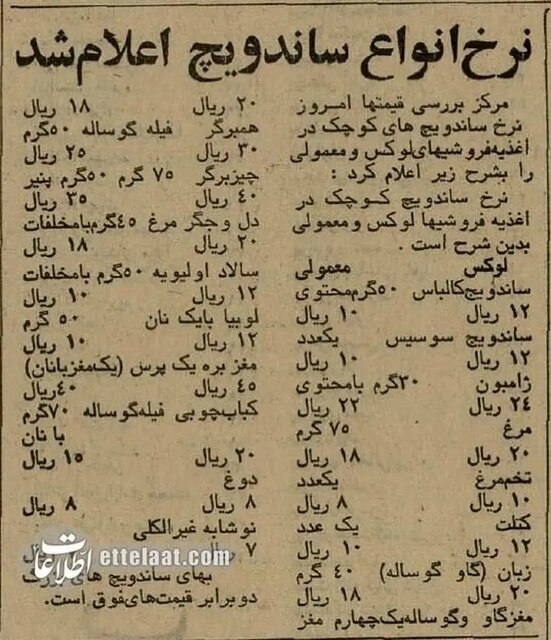 نرخ انواع ساندویچ اعلام شد
مرکز بررسی قیمتها امروز
نرخ ساندویچ های کوچک در
اغذیه فروشیهای لوکس و معمولی
را بشرح زیر اعلام کرد :
نرخ ساندویچ کوچک در
اغذیه فروشیها لوکس و معمولی
بدین شرح است .
لوکس معمولی
ساندویچ کالباس ۵۰ گرم محتوی
۱۲ ریال ۱۰ ریال
ساندویچ سوسیس یکعدد
۱۲ ریال ۱۰ ریال
ژامبون ۳۰ گرم با محتوی
۲۴ ریال ۲۲ ریال
مرغ ۷۵ گرم
۲۰ ریال ۱۸ ریال
تخم مرغ یکعدد
۱۰ ریال ۸ ریال
کتلت یک عدد
۱۲ ریال ۱۰ ریال
زبان (گاو گوساله) ۴۰ گرم
۲۰ ریال ۱۸ ریال
مغز گاو و گوساله یک چهارم مغز
۲۰ ریال ۱۸ ریال
همبرگر فیله گوساله ۵۰ گرم
۳۰ ریال ۲۵ ریال
چیزبرگر ۷۵ گرم ۵۰ گرم پنیر
۴۰ ریال ۳۵ ریال
دل و جگر مرغ ۴۵ گرم با مخلفات
۲۰ ریال ۱۸ ریال
سالاد اولیویه ۵۰ گرم با مخلفات
۱۲ ریال ۱۰ ریال
لوبیا با یک نان ۵۰ گرم
۱۲ ریال ۱۰ ریال
مغز بره یک پرس (یک مغز بانان)
۴۵ ریال ۴۰ ریال
کباب چوبی فیله گوساله ۷۰ گرم
با نان
۲۰ ریال ۱۵ ریال
دوغ
۸ ریال ۸ ریال
نوشابه غیر الکلی
۷ ریال
بهای ساندویچ های
دو برابر قیمت‌های فوق است.
اطلاعات
ettelaat.com